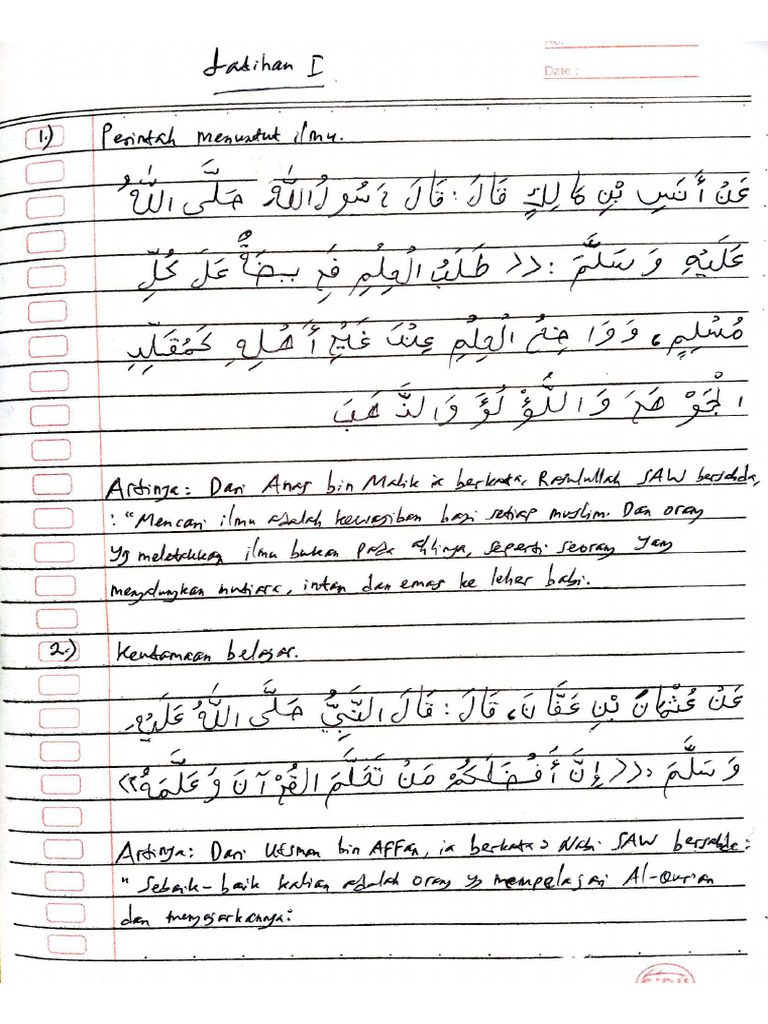 No.
Date :
Latihan I
1.) Perintah menuntut ilmu.
عَنْ أَنَسِ بْنِ مَالِكٍ قَالَ : قَالَ رَسُولُ اللّٰهِ صَلَّى اللّٰهُ
عَلَيْهِ وَسَلَّمَ : << طَلَبُ الْعِلْمِ فَرِيضَةٌ عَلَى كُلِّ
مُسْلِمٍ، وَوَاضِعُ الْعِلْمِ عِنْدَ غَيْرِ أَهْلِهِ كَمُقَلِّدِ
الْجَوْهَرَ وَاللُّؤْلُؤَ وَالذَّهَبَ
Artinya : Dari Anas bin Malik ia berkata, Rasulullah SAW bersabda,
: "Mencari ilmu adalah kewajiban bagi setiap muslim. Dan orang
yg meletakkan ilmu bukan pada ahlinya, seperti seorang yang
mengalungkan mutiara, intan dan emas ke leher babi.
2.) Keutamaan belajar.
عَنْ عُثْمَانَ بْنِ عَفَّانَ، قَالَ : قَالَ النَّبِيُّ صَلَّى اللّٰهُ عَلَيْهِ
وَسَلَّمَ : << إِنَّ أَفْضَلَكُمْ مَنْ تَعَلَّمَ الْقُرْآنَ وَعَلَّمَهُ >>
Artinya : Dari Utsman bin Affan, ia berkata : Nabi SAW bersabda :
" Sebaik-baik kalian adalah orang yg mempelajari Al-Qur'an
dan mengajarkannya :